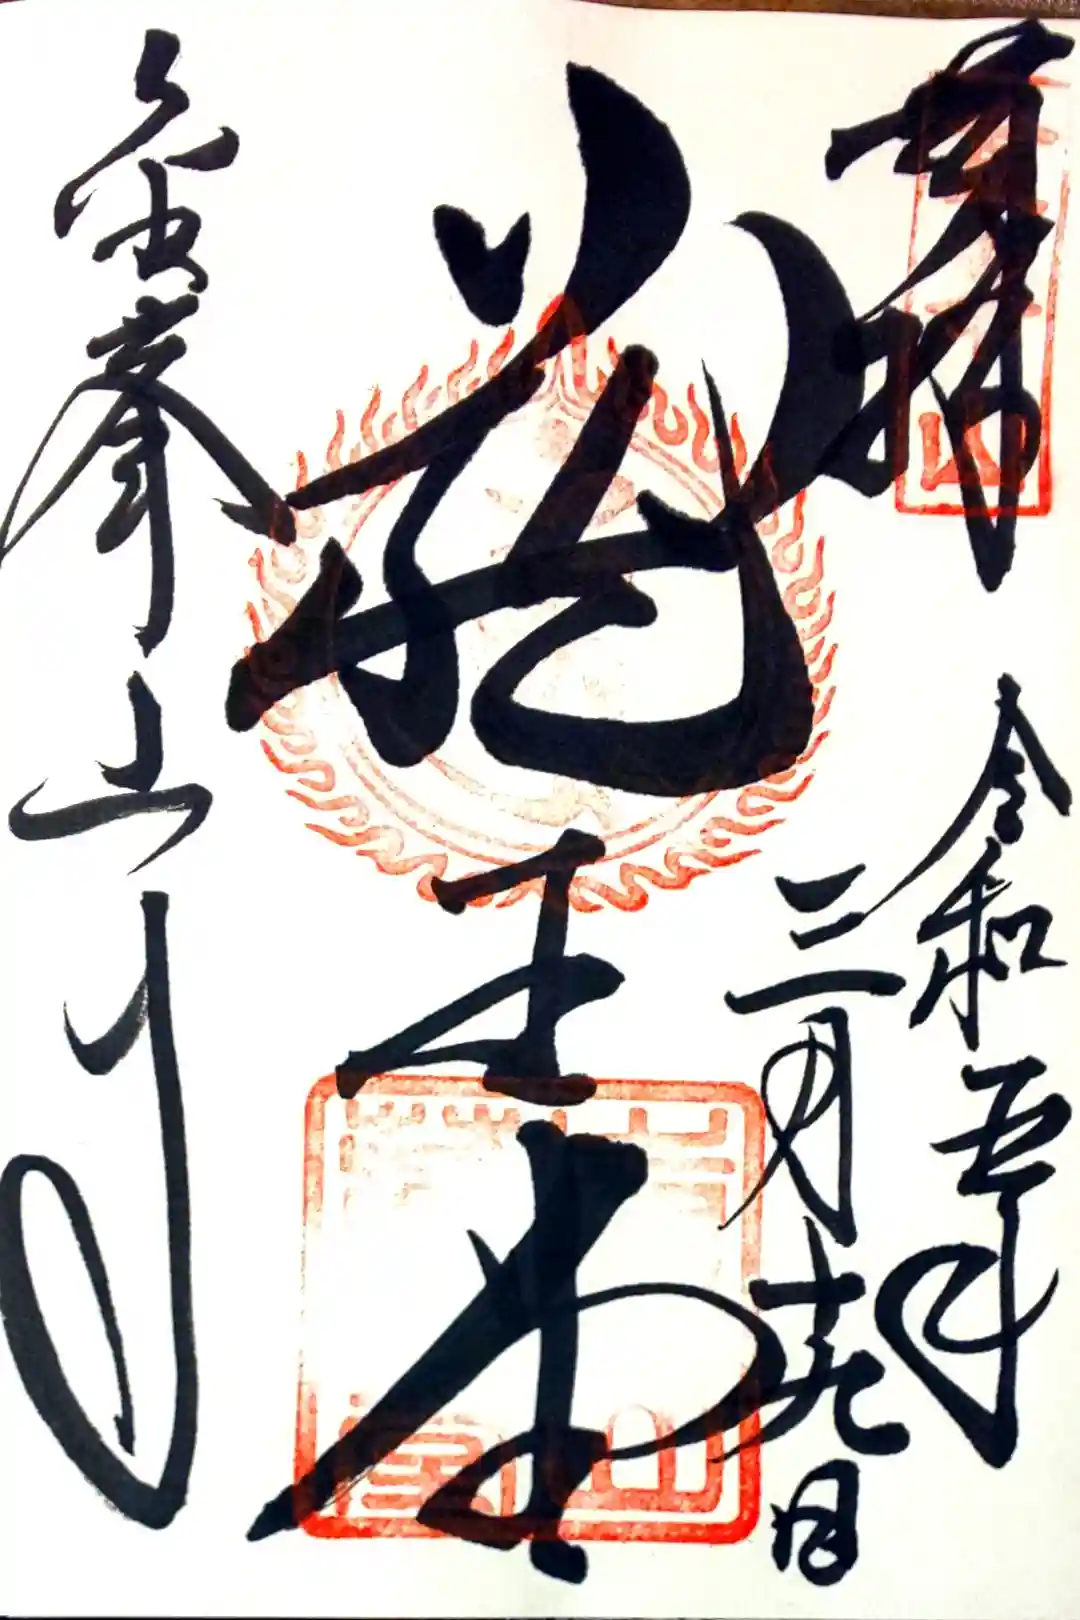 奉拝
令和五年
三月十九日
蔵王堂
金峯山寺